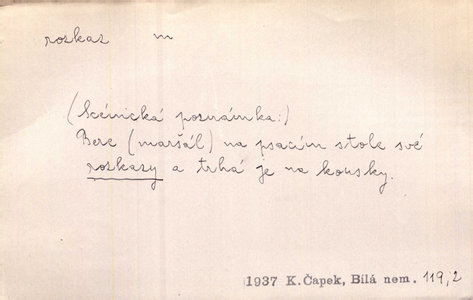 rozkaz m
(Scénická poznámka:)
Bere (maršál) na psacím stole své
rozkazy a trhá je na kousky.
1937 K.Čapek, Bílá nem. 119,2